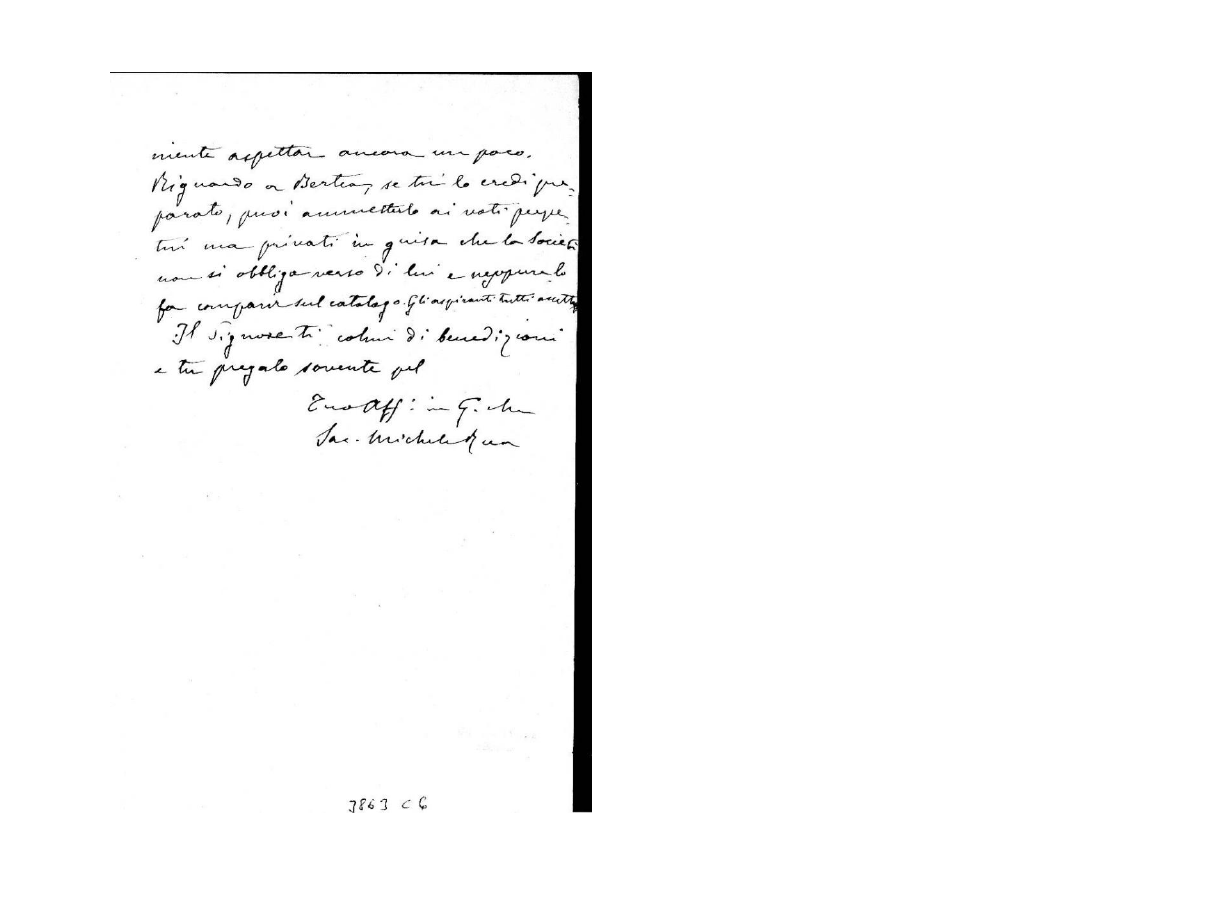 niente aspettar ancora un poco.
Riguardo a Bertea, se tu lo credi pre-
parato, puoi ammetterlo ai voti perpe
tui ma privati in guisa che la Società
non si obbliga verso di lui e neppure lo
fa comparir sul catalogo. Gli aspiranti tutti
Il Signore ti colmi di benedizioni
e tu pregalo sovente pel
Tuo Aff: in G. e M
Sac. Michele Rua
3863 C 6